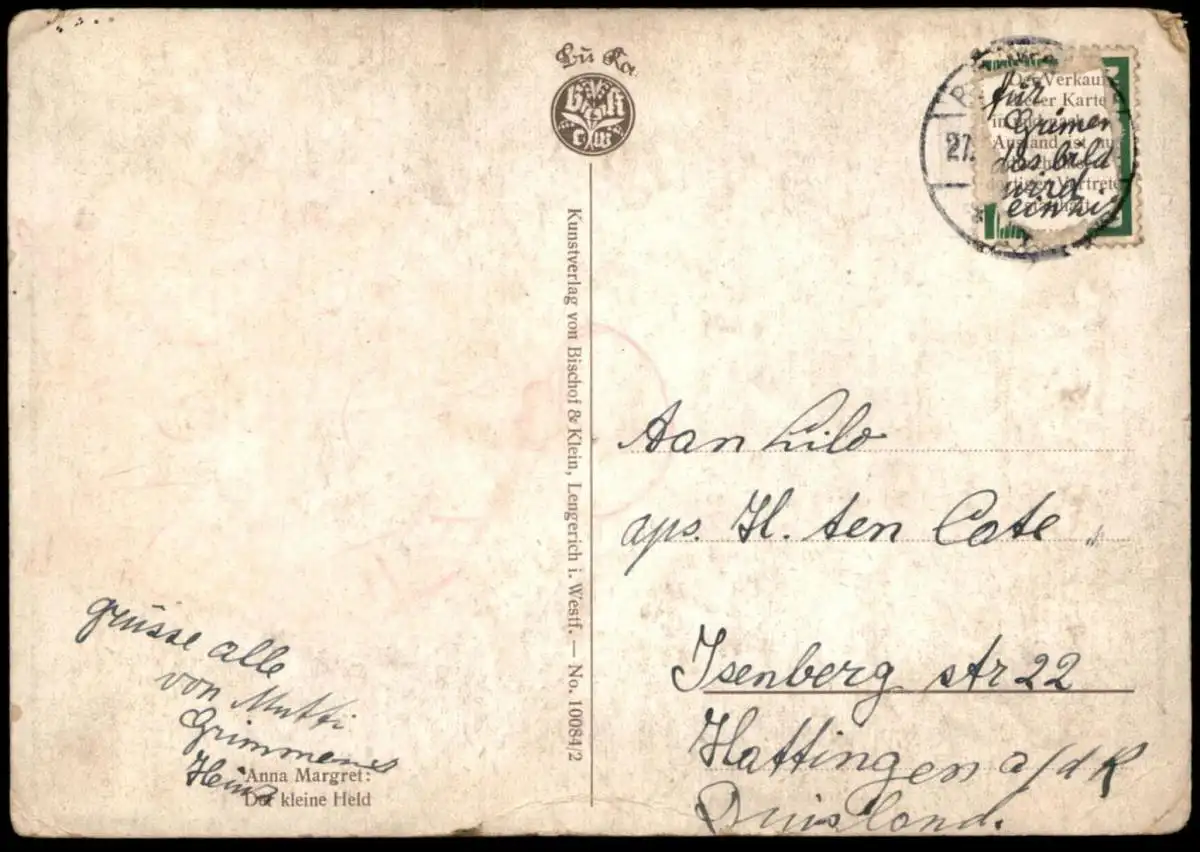 Bü Ka
grüsse alle
von Mutti
Grimmens
Heinz
Anna Margret:
Der kleine Held
Kunstverlag von Bischof & Klein, Lengerich i. Westf. — No. 10084/2
27.
Der Verkauf
dieser Karte
Ausland ist
für
Grimen
das bild
wird
Aan Lilo
aps. H. ten Cate
Isenberg str 22
Hattingen a/d R
Duisland.